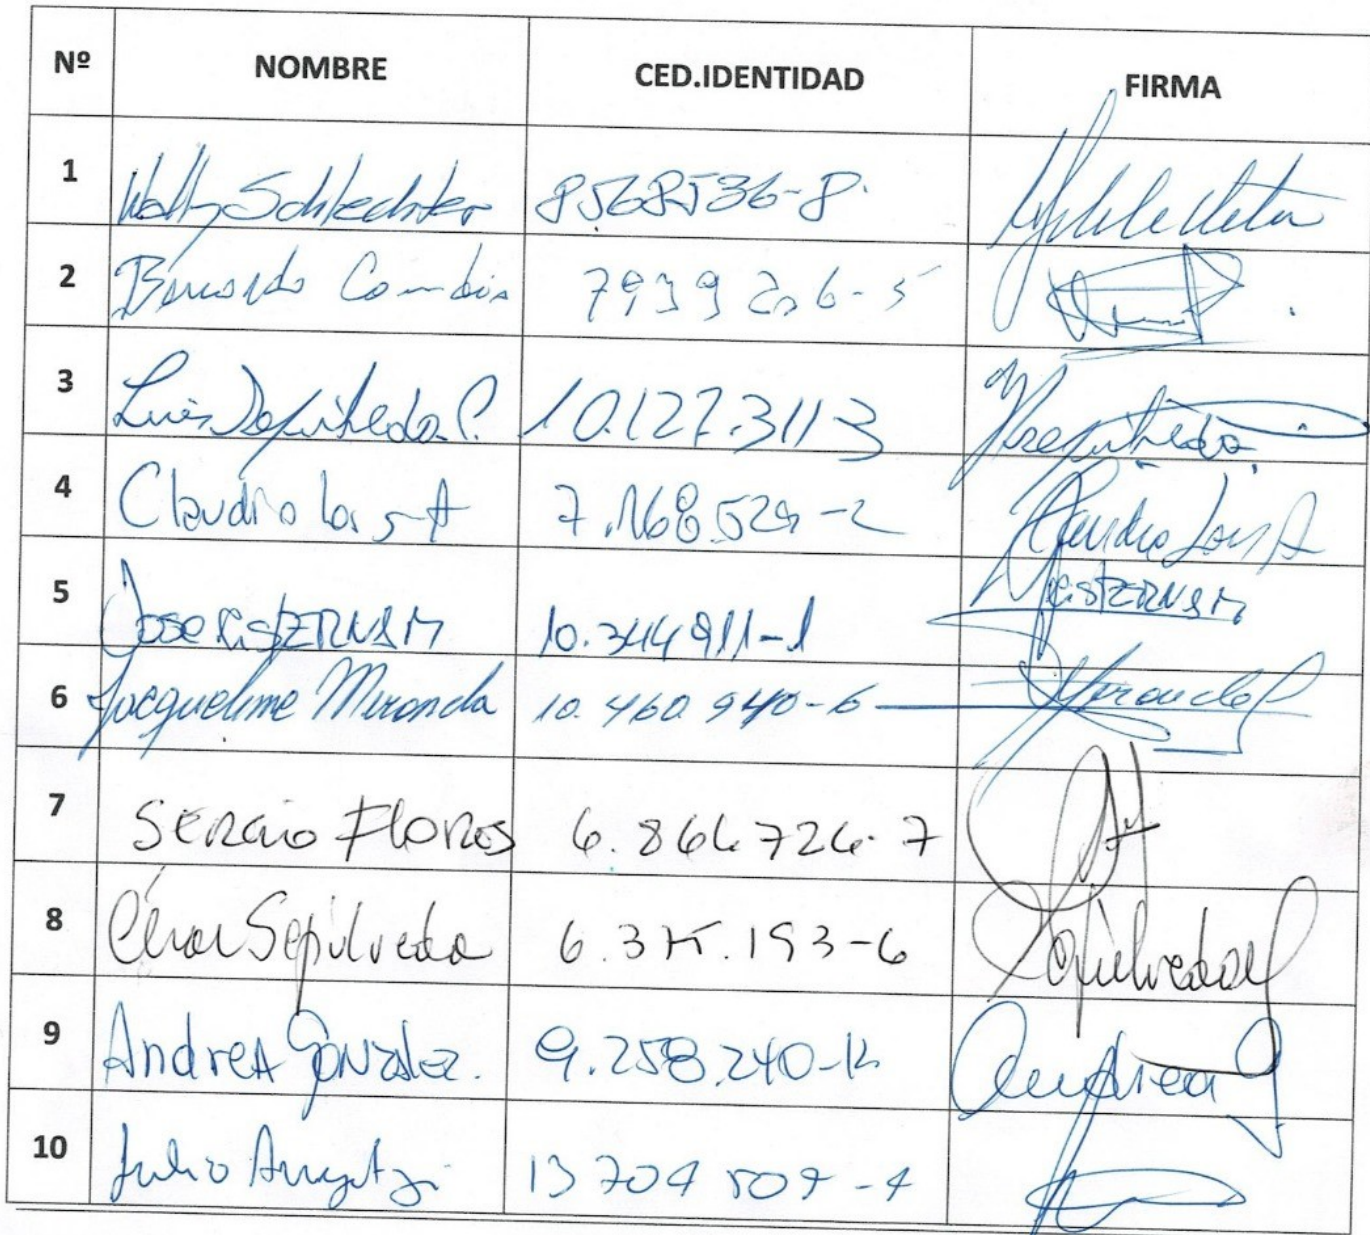 Nº NOMBRE CED.IDENTIDAD FIRMA
1 Wally Schlechter 8568536-8
2 Bernardo 7939206-5
3 Luis Sepúlveda C. 10.127.311-3 Sepúlveda
4 Claudio Lois A 7.168.529-2 Claudio Lois A
5 Jose Cisternas M 10.344911-1 Cisternas M
6 Jacqueline Miranda 10.460.940-6
7 Sergio Flores 6.866726-7
8 César Sepúlveda 6.375.193-6 Sepúlveda
9 Andrea González. 9.258.240-K Andrea G
10 Julio 13704509-4